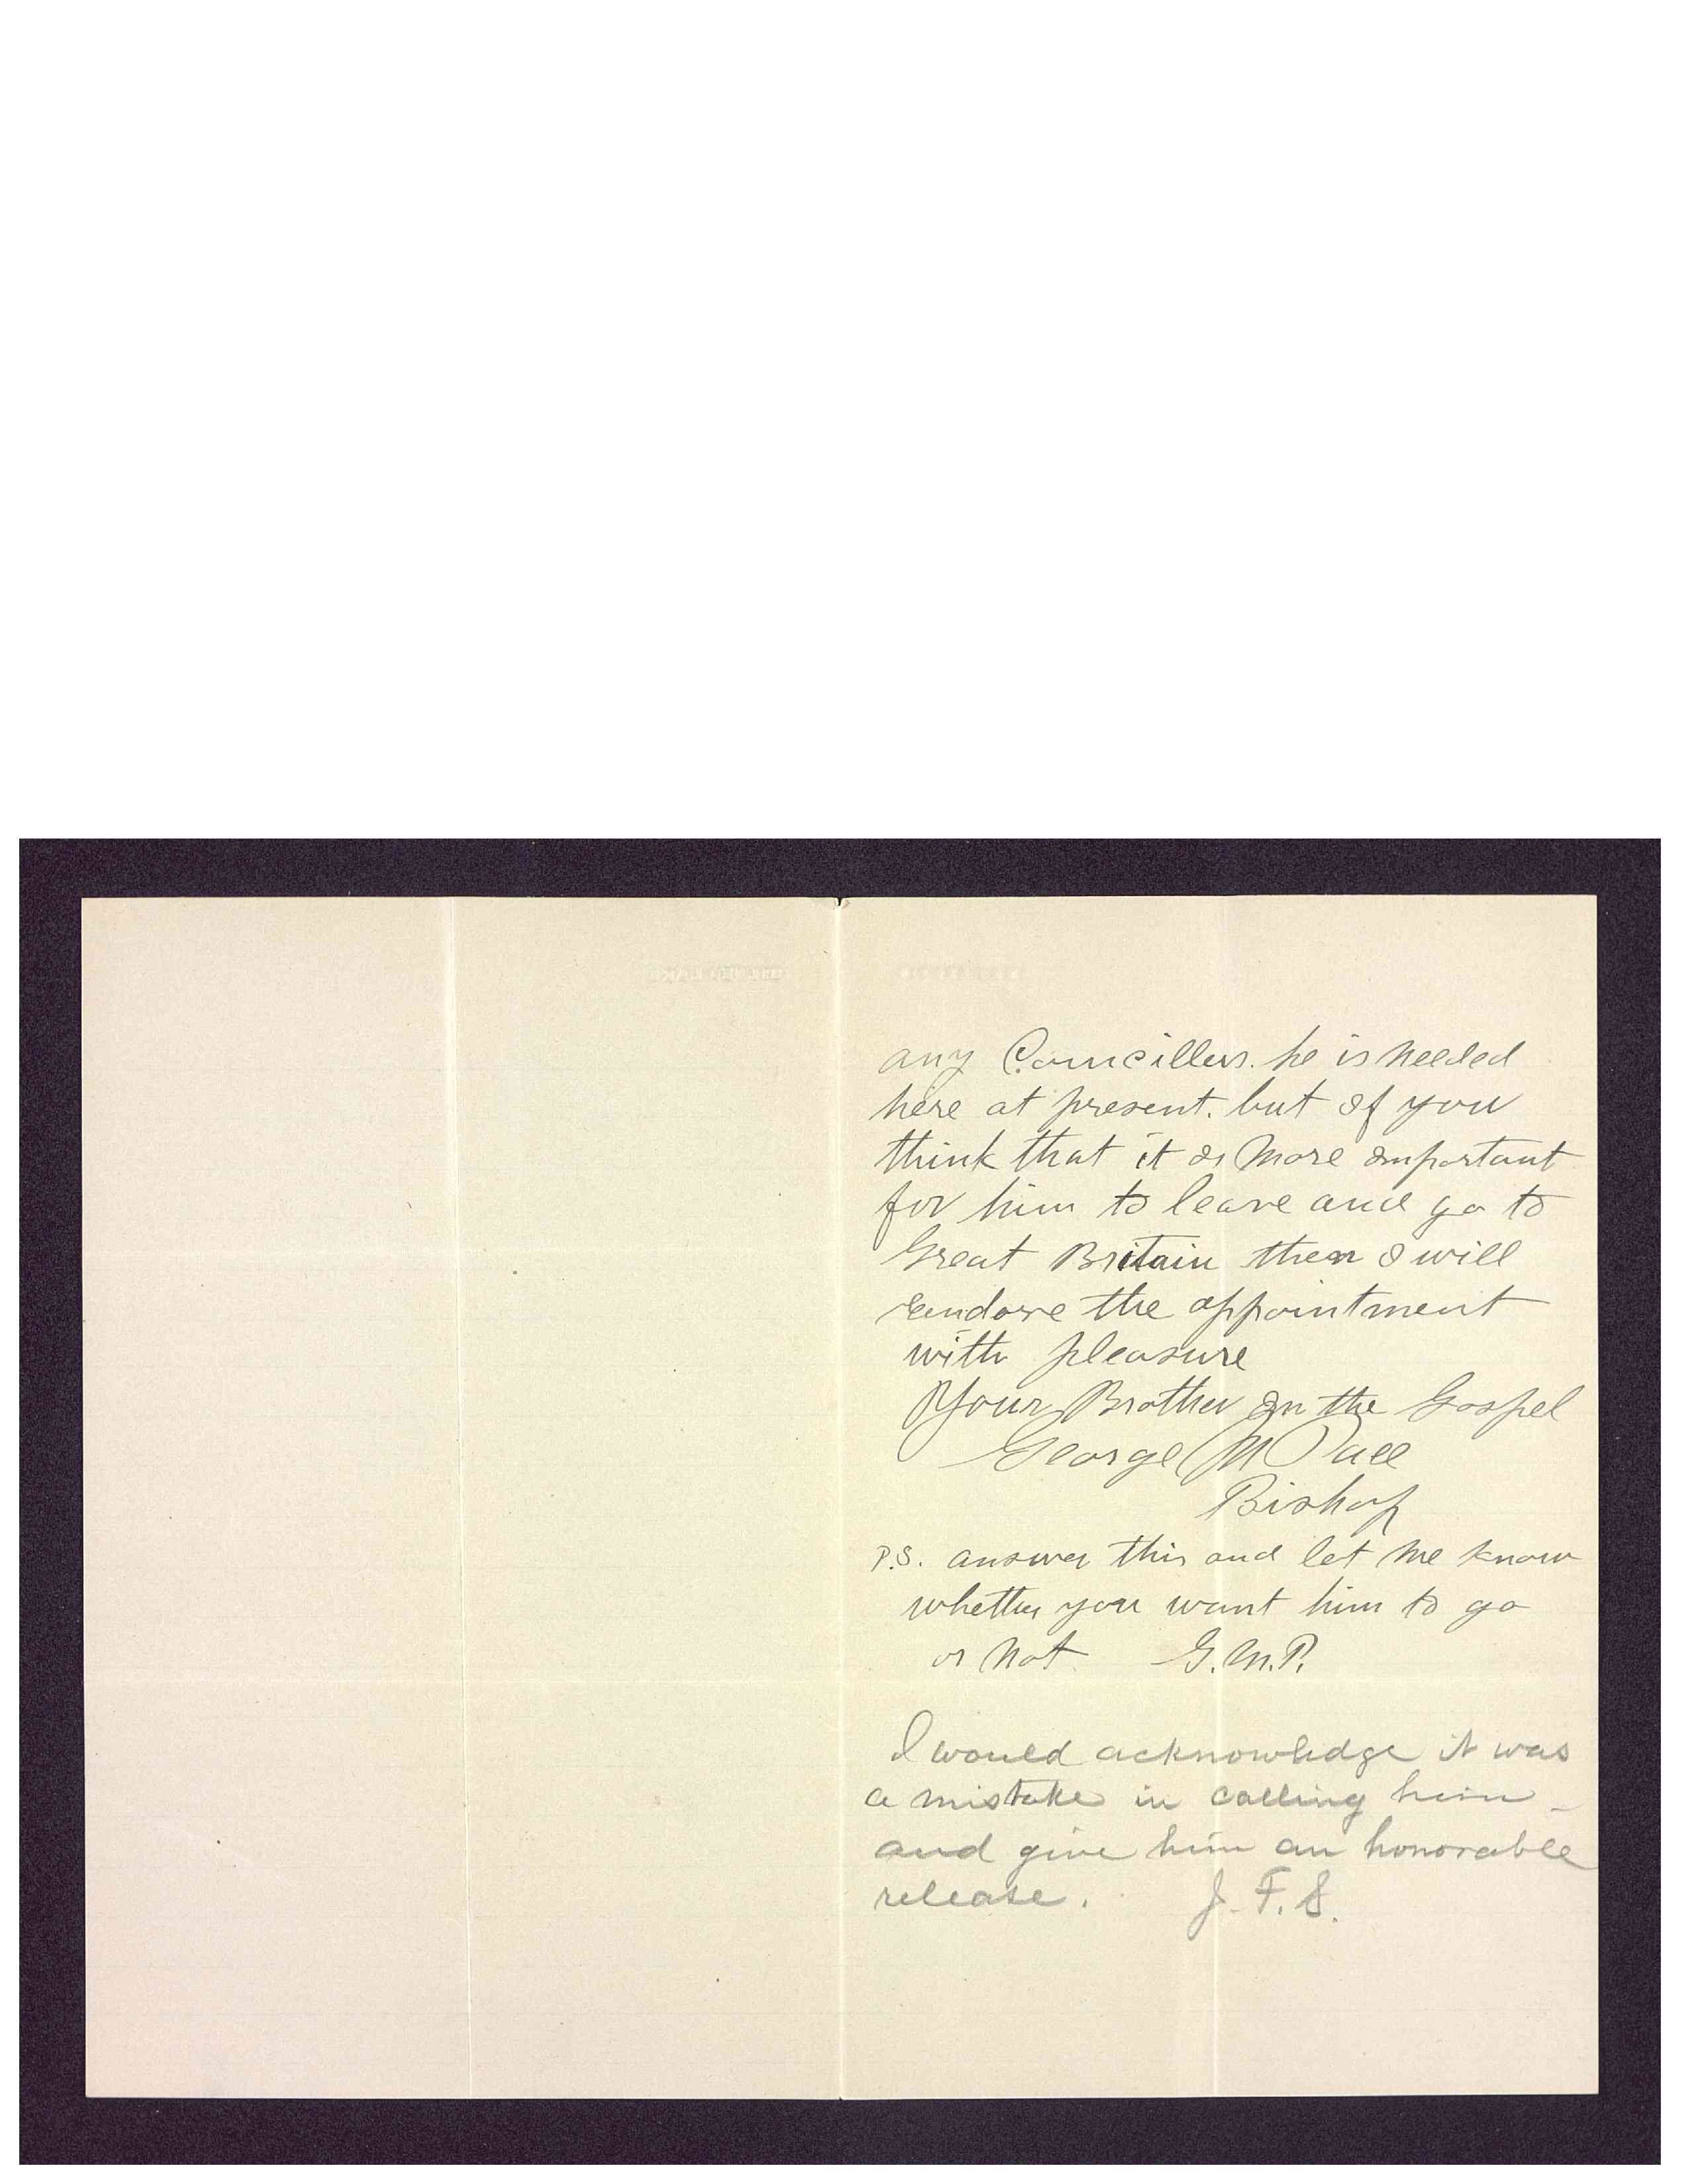 any Councillers. he is needed
here at present. but If you
think that it Is More Important
for him to leave and go to
Great Britain then I will
endorse the appointment
with pleasure
Your Brother In the Gospel
George M Pace
Bishop
P.S. answer this and let Me know
whether you want him to go
or Not G.M.P.
I would acknowledge it was
a mistake in calling him –
and give him an honorable
release. J. F. S.